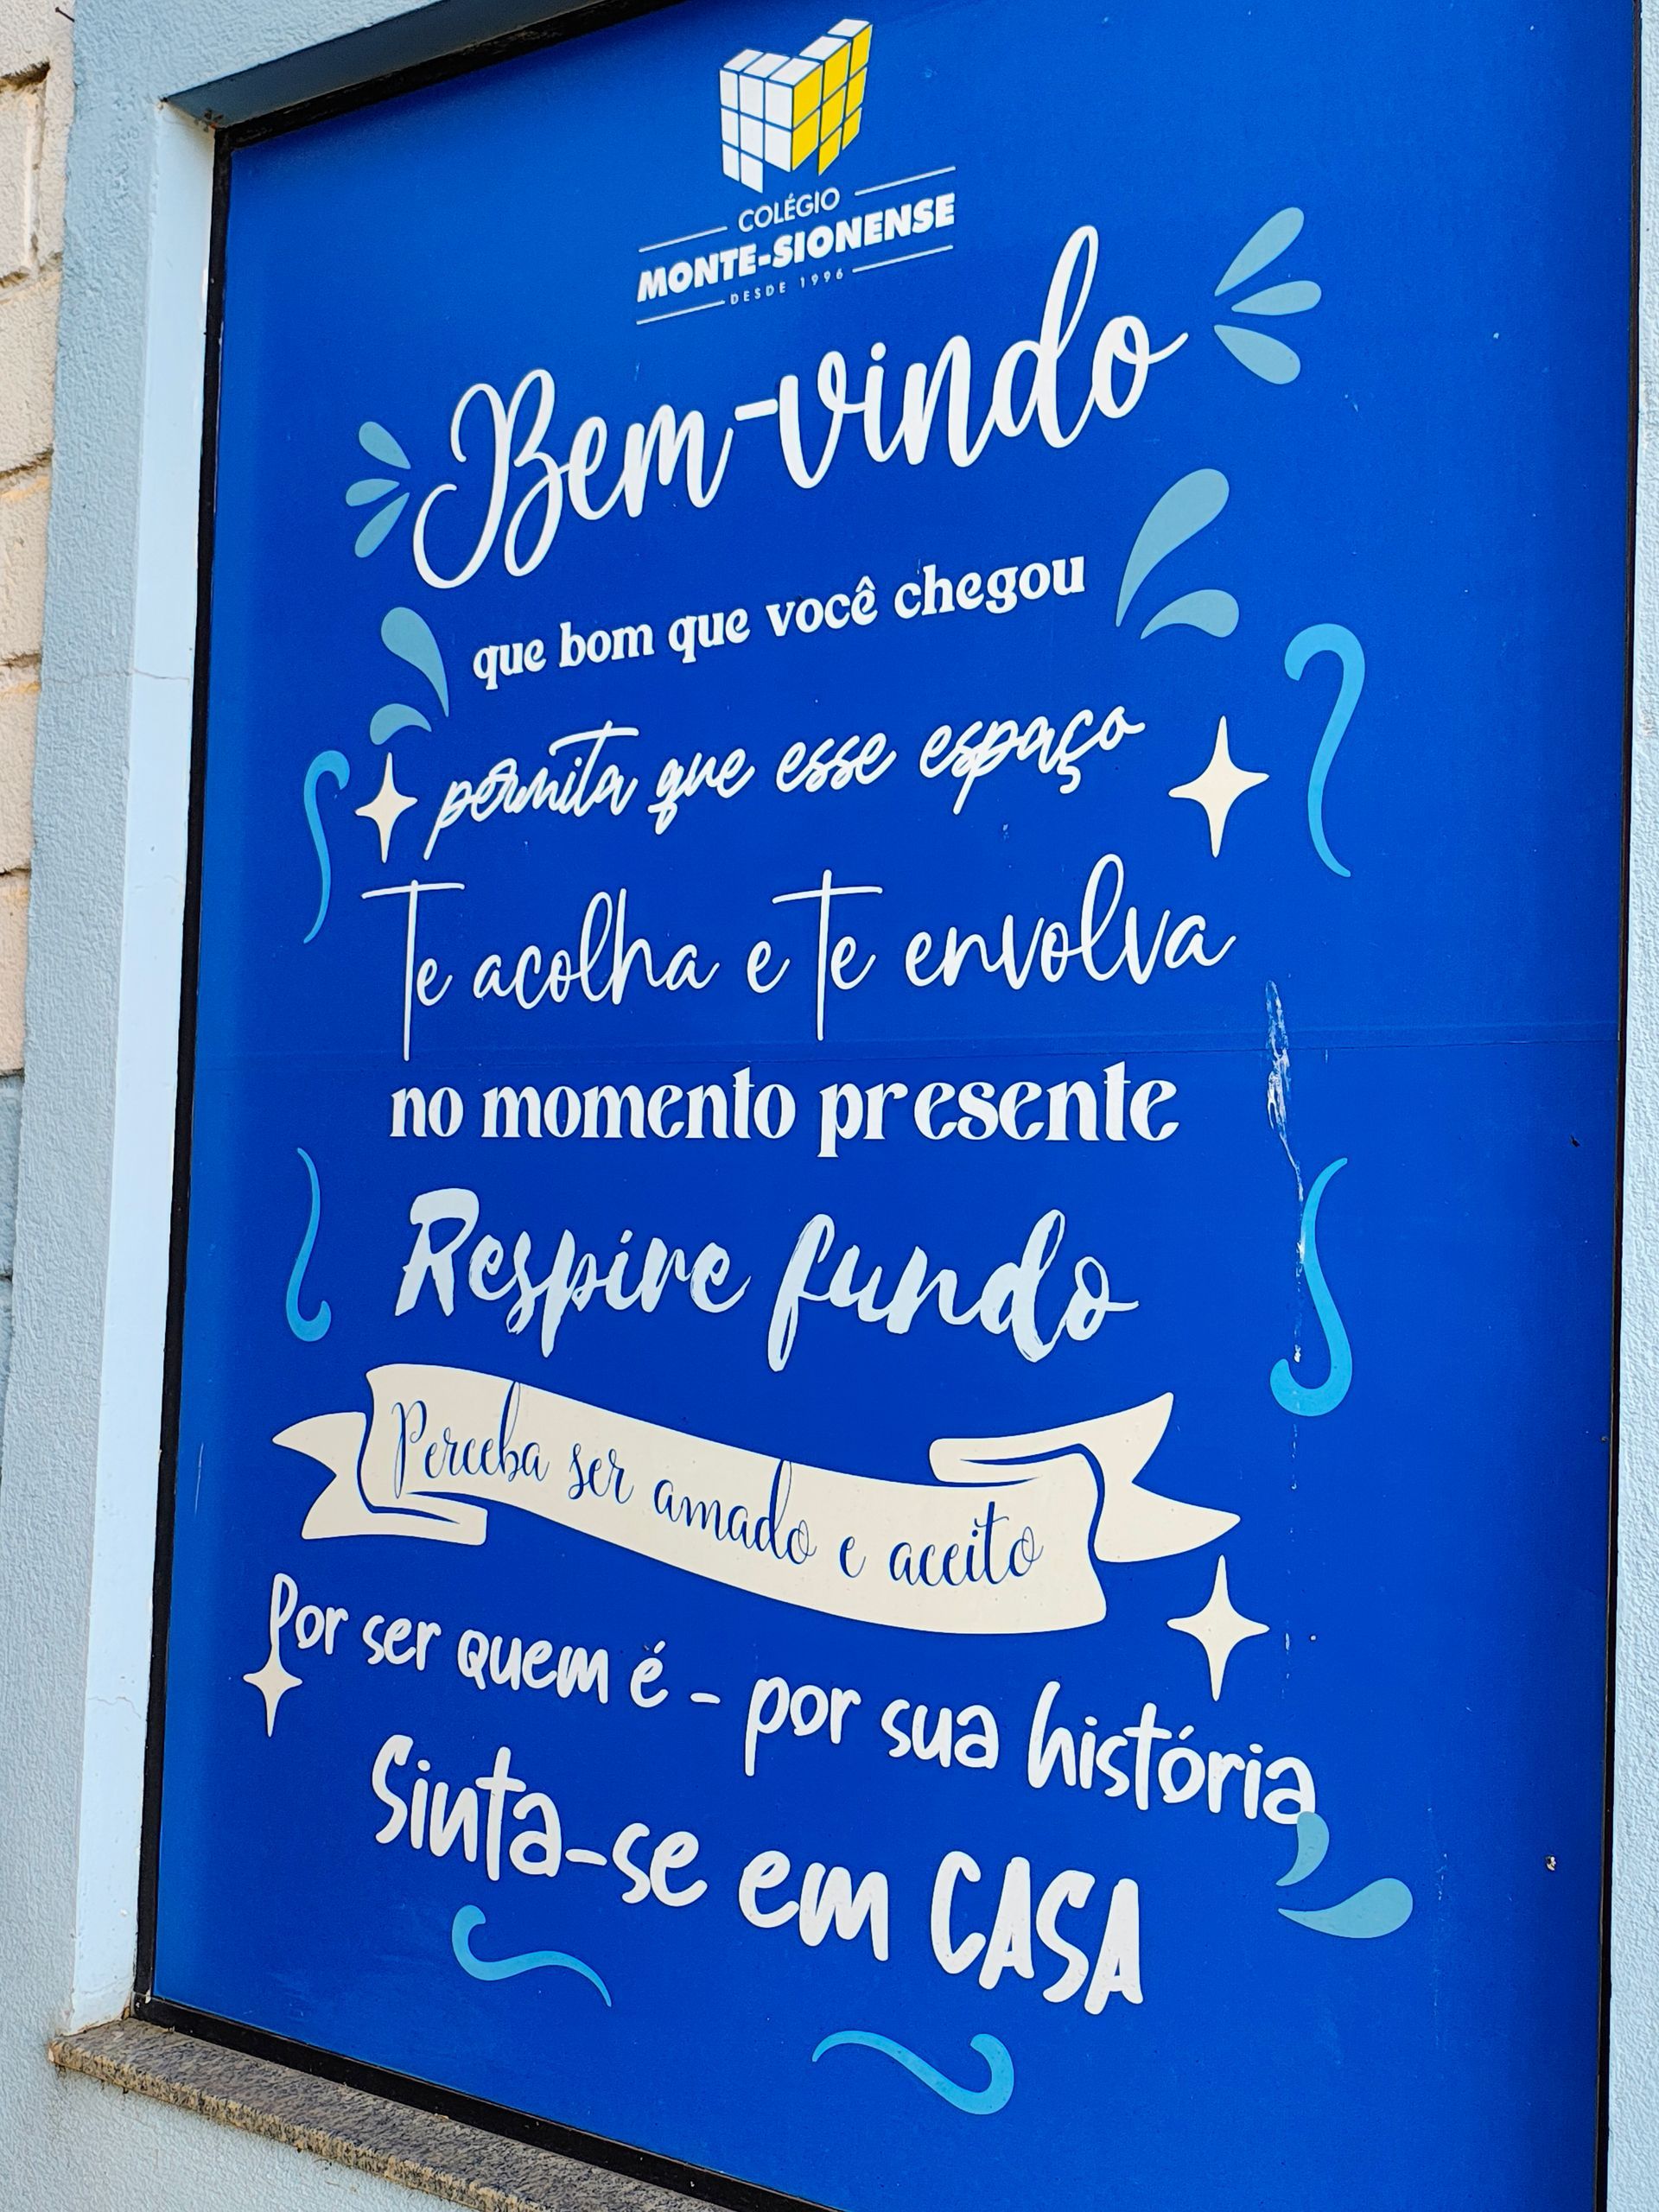 COLÉGIO
MONTE-SIONENSE
DESDE 1996
Bem-vindo
que bom que você chegou
permita que esse espaço
Te acolha e Te envolva
no momento presente
Respire fundo
Perceba ser amado e aceito
Por ser quem é - por sua história
Sinta-se em CASA